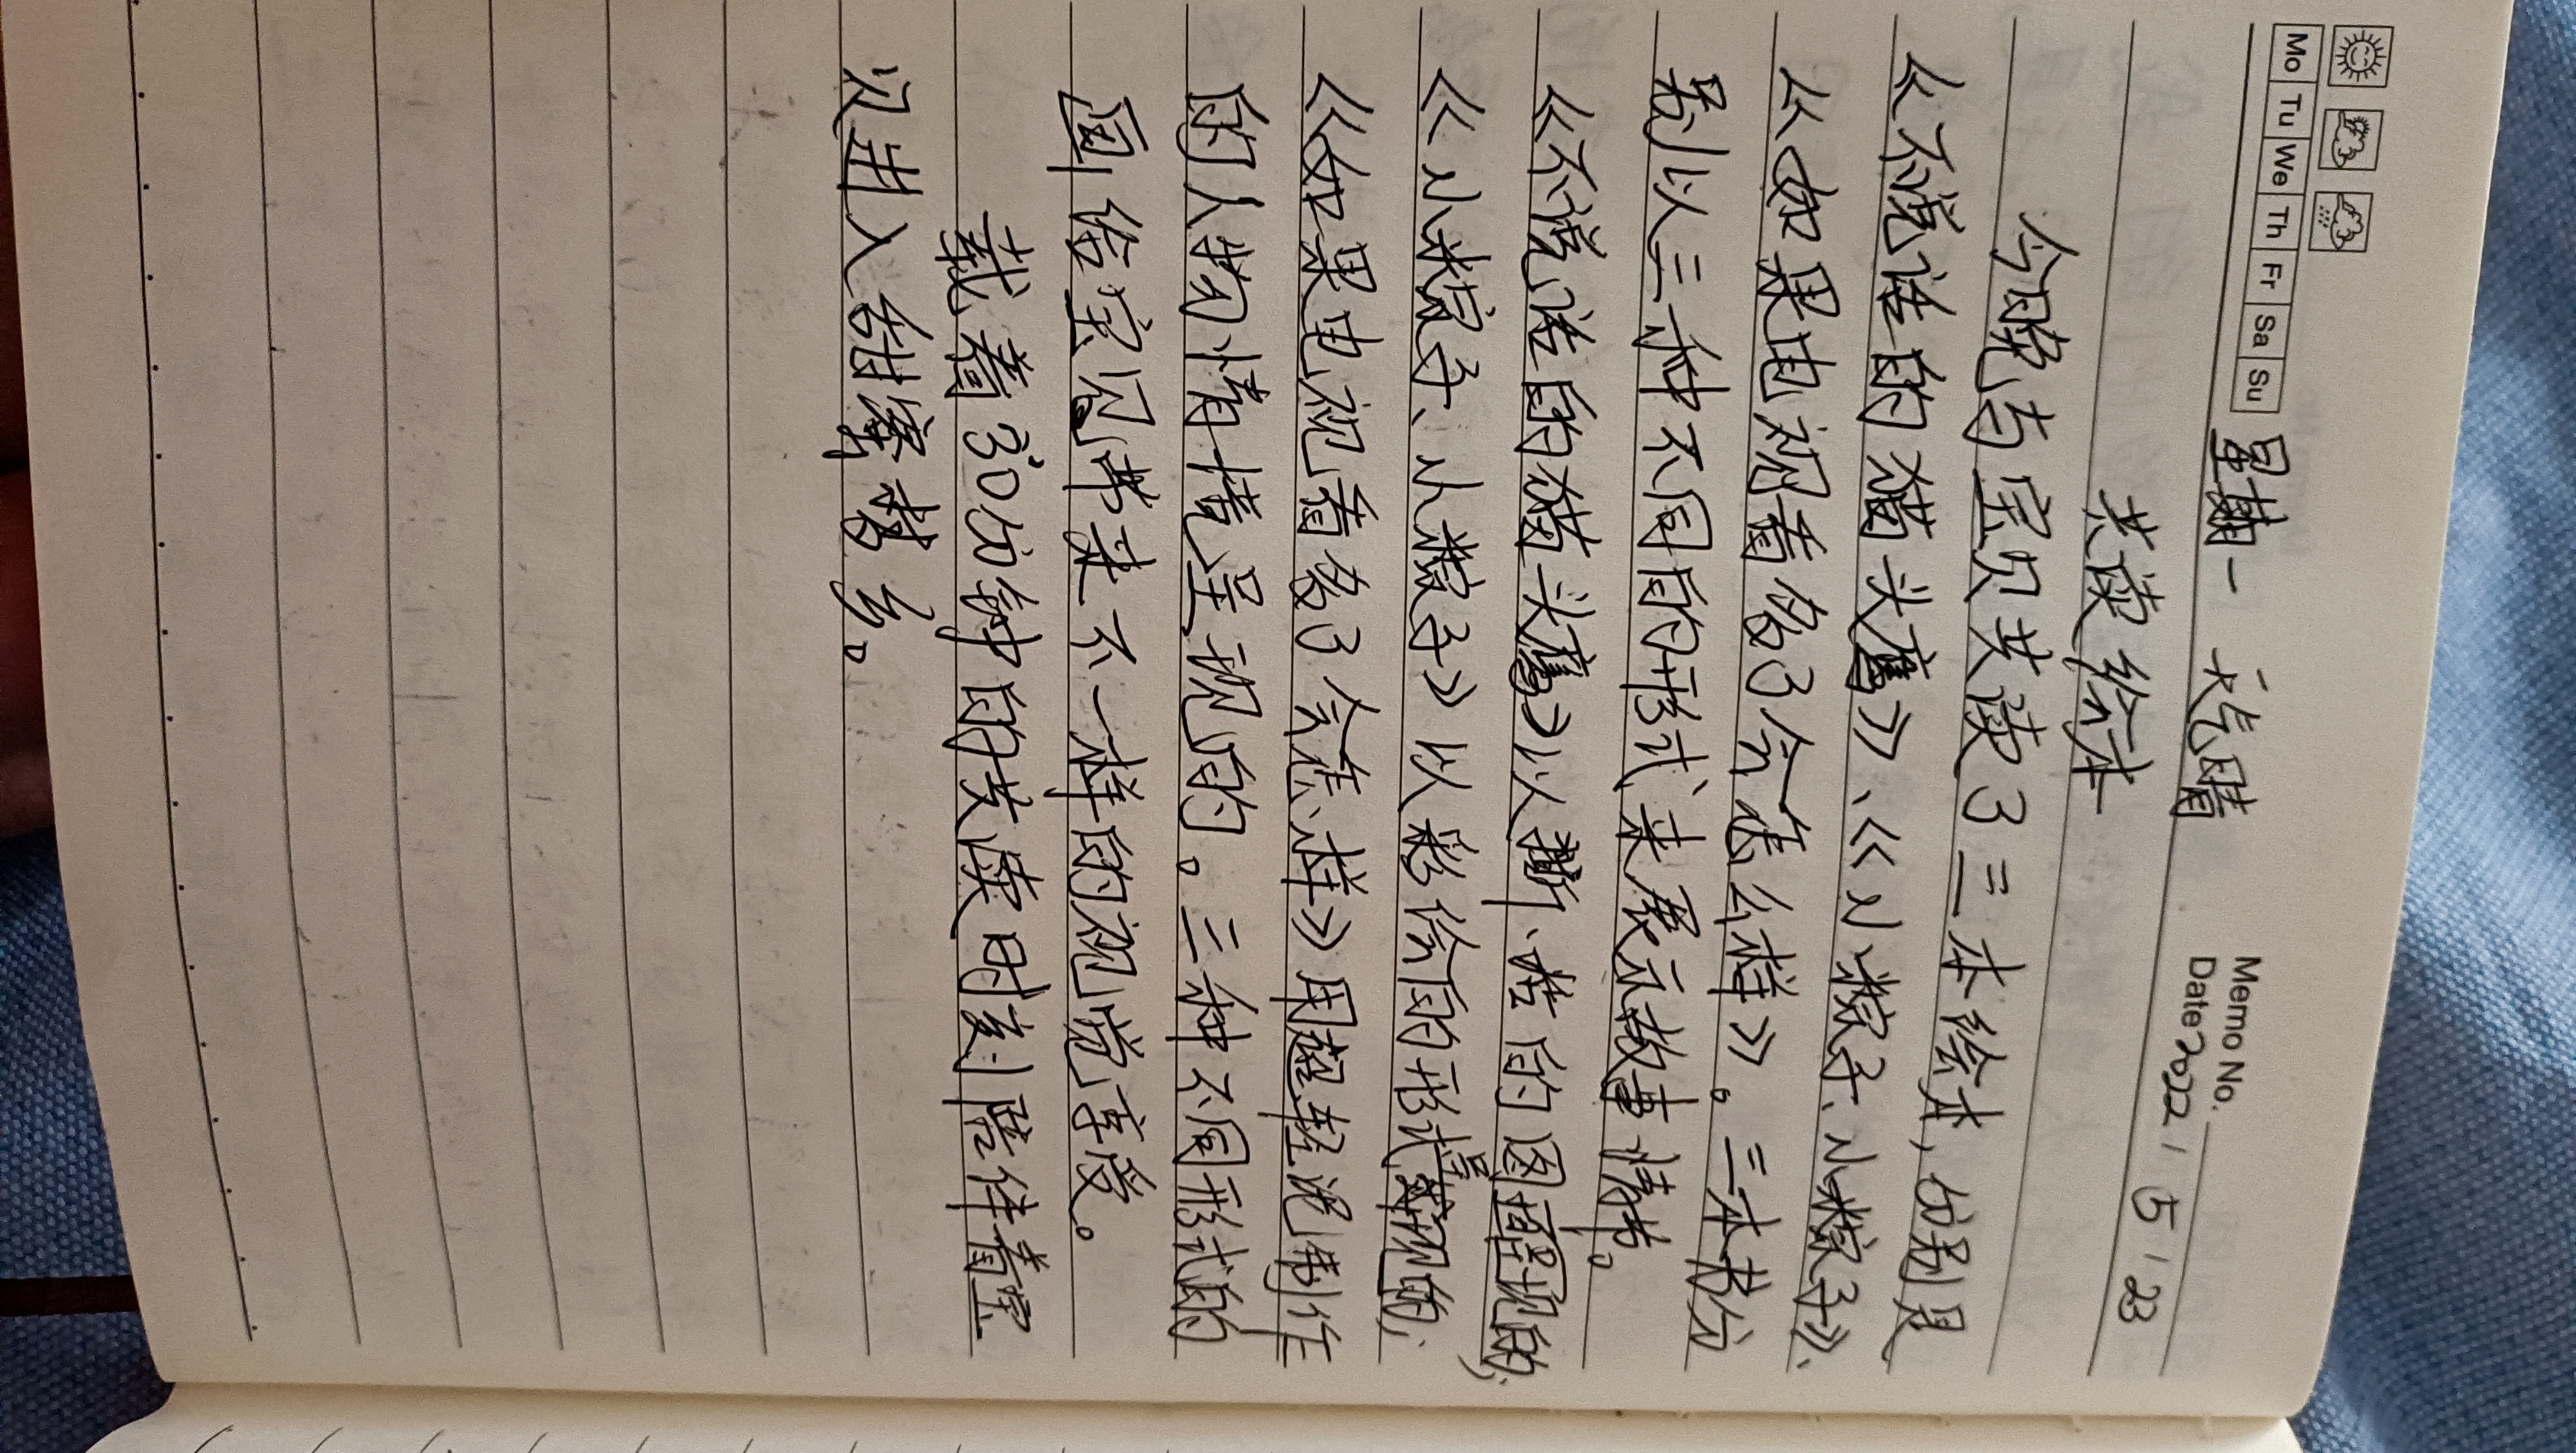 Memo No.
Mo Tu We Th Fr Sa Su 星期一 天气晴 Date 2022 / 5 / 23
共读绘本
今晚与宝贝共读了三本绘本，分别是
《不说话的猫头鹰》、《小粽子、小粽子》、
《如果电视看多了会怎么样》。三本书分
别以三种不同的形式来展示故事情节。
《不说话的猫头鹰》以撕、粘的图呈现的；
《小粽子、小粽子》以彩绘的形式呈现的；
《如果电视看多了会怎样》用超轻泥制作
的人物情境呈现的。三种不同形式的
画给宝贝带来不一样的视觉享受。
载着30分钟的共读时刻陪伴着宝
贝进入甜蜜梦乡。